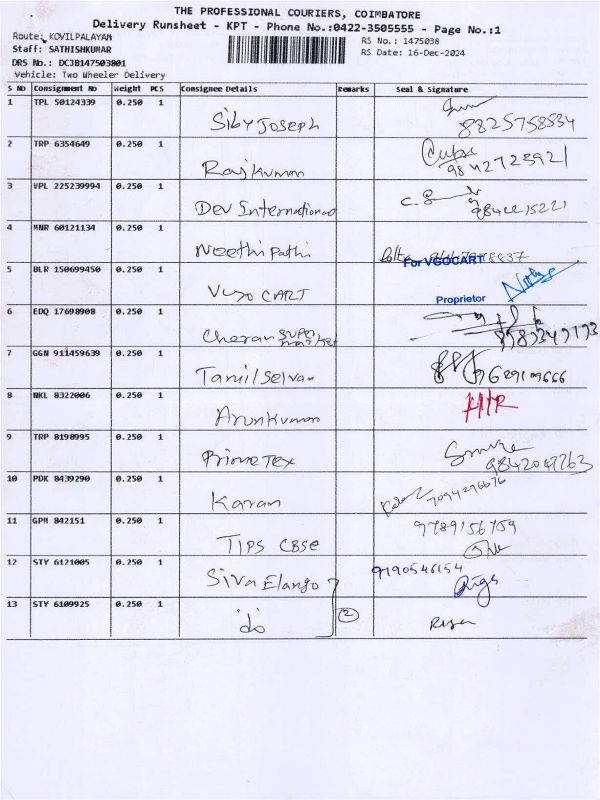 THE PROFESSIONAL COURIERS, COIMBATORE
Delivery Runsheet - KPT - Phone No.:0422-3505555 - Page No.:1
Route: KOVILPALAYAM
RS No.: 1475038
Staff: SATHISHKUMAR
RS Date: 16-Dec-2024
DRS No.: DCJB147503801
Vehicle: Two Wheeler Delivery
S No Consignment No Weight PCS Consignee Details Remarks Seal & Signature
1 TPL 50124339 0.250 1 Siby Joseph
8825758534
2 TRP 6354649 0.250 1 Rajkumar
9842723921
3 VPL 225239994 0.250 1 Dev International
4 MNR 60121134 0.250 1 Neethipathi
For VGOCART
5 BLR 150699450 0.250 1 Vgo CART
Proprietor
6 EDQ 17698908 0.250 1 Cheran super market
7 GGN 911459639 0.250 1 Tamil Selvan
9629109666
8 NKL 8322006 0.250 1 Arunkumar
9 TRP 8198995 0.250 1 Prime Tex
9842047263
10 PDK 8439290 0.250 1 Karan
7094296676
11 GPM 842151 0.250 1 TIPS CBSE
9789156759
12 STY 6121005 0.250 1 Siva Elango
9190546154
13 STY 6109925 0.250 1 do 2